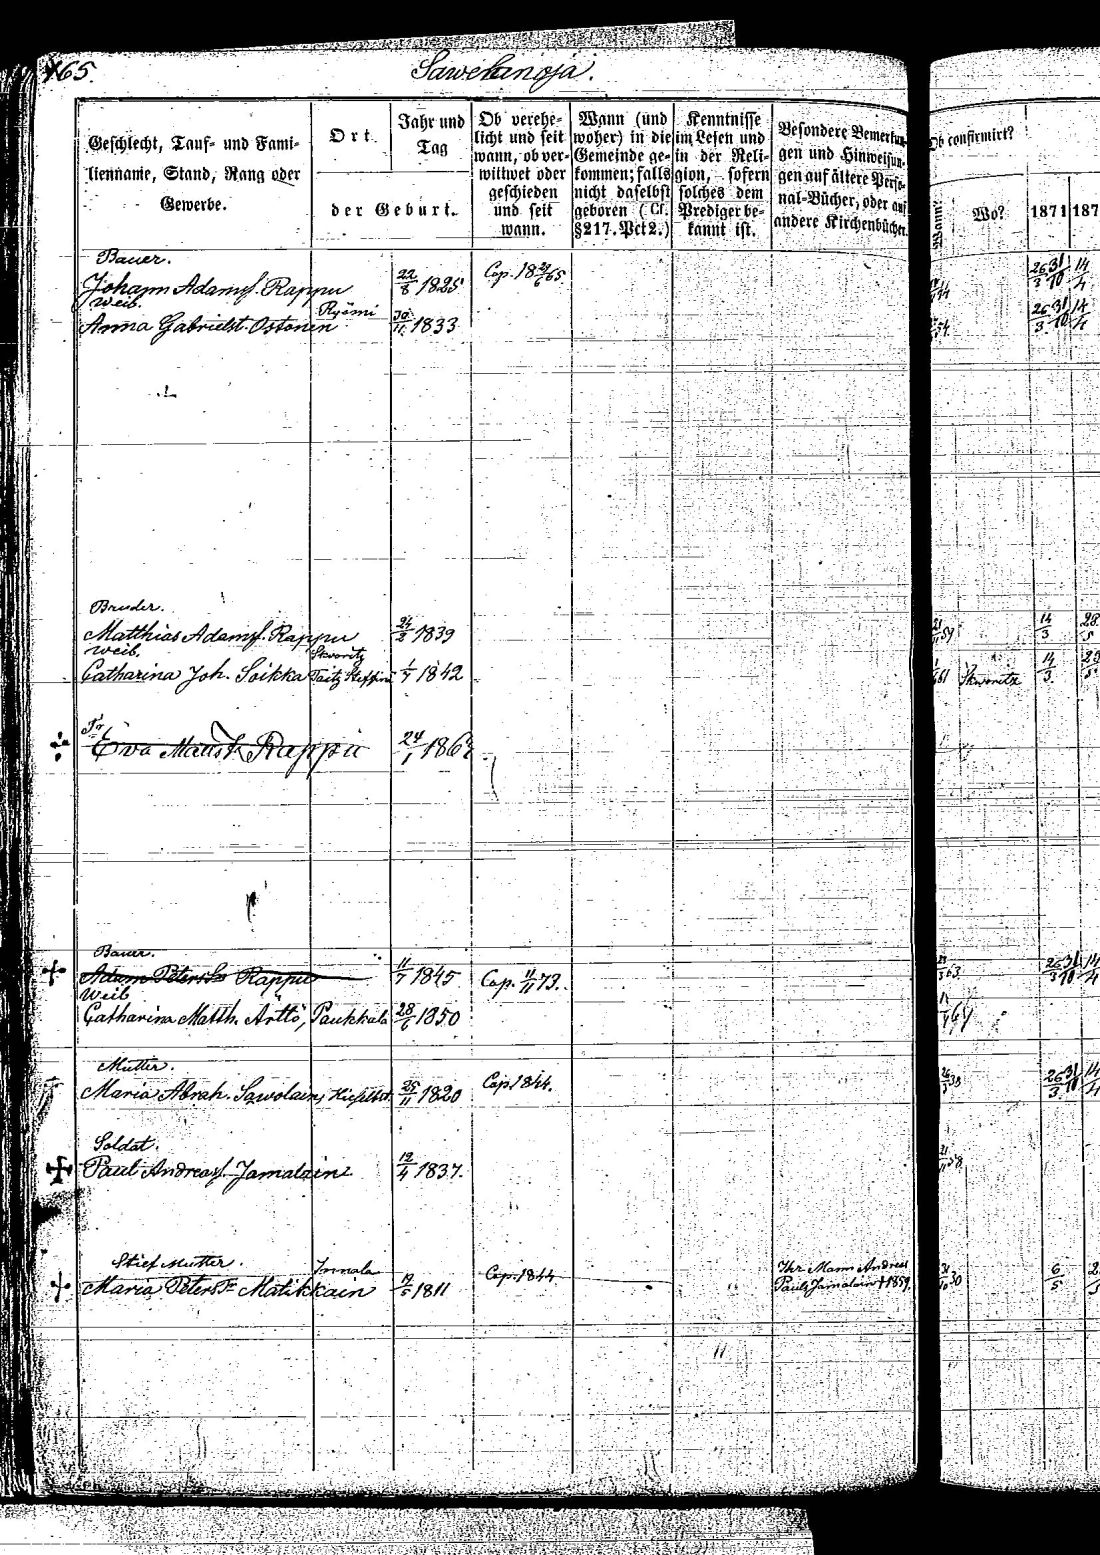 165
Sawekinoja.
Geschlecht, Tauf- und Fami-
lienname, Stand, Rang oder
Gewerbe.
Ort
Jahr und
Tag
der Geburt.
Ob verehe-
licht und seit
wann, ob ver-
wittwet oder
geschieden
und seit
wann.
Wann (und
woher) in die
Gemeinde ge-
kommen; falls
nicht daselbst
geboren (Cf.
§217. Pct 2.)
Kenntnisse
im Lesen und
in der Reli-
gion, sofern
solches dem
Prediger be-
kannt ist.
Besondere Bemerkun-
gen und Hinweisun-
gen auf ältere Perso-
nal-Bücher, oder auf
andere Kirchenbücher.
Ob confirmirt?
Wann?
Wo?
1871
187
Bauer.
Johann Adamss. Rappu 22/8 1825 Cap. 18 /6 65. 26/3 31/10 14/4
Weib.
Anna Gabrielst. Ostonen Ryömi 30/11 1833 54 26/3 31/10 14/4
Bruder.
Matthias Adamss. Rappu 24/2 1839 59 14/3 28/5
Weib.
Catharina Joh. Soikka Skworitz Taitz 1/7 1842 61 Skworitz 14/3
Tr.
Eva Mattst. Rappu 24/1 186
Bauer.
Adam Peters So Rappu 11/7 1845 Cap. 4/11 73. 63 26/3 31/10 14/4
Weib
Catharina Matth. Arttö, Paukkala 28/6 1850
Mutter.
Maria Abrah. Sawolain, 25/11 1820 Cap. 1844. 38 26/3 31/10 14/4
Soldat.
Paul Andreass. Jamalaine 12/4 1837. 58
Stief Mutter.
Maria Peters Tr Matikkain Inmala 19/5 1811 Cap. 1844 Ihr Mann Andreas
Pauls Jamalain † 1859. 30 6/5